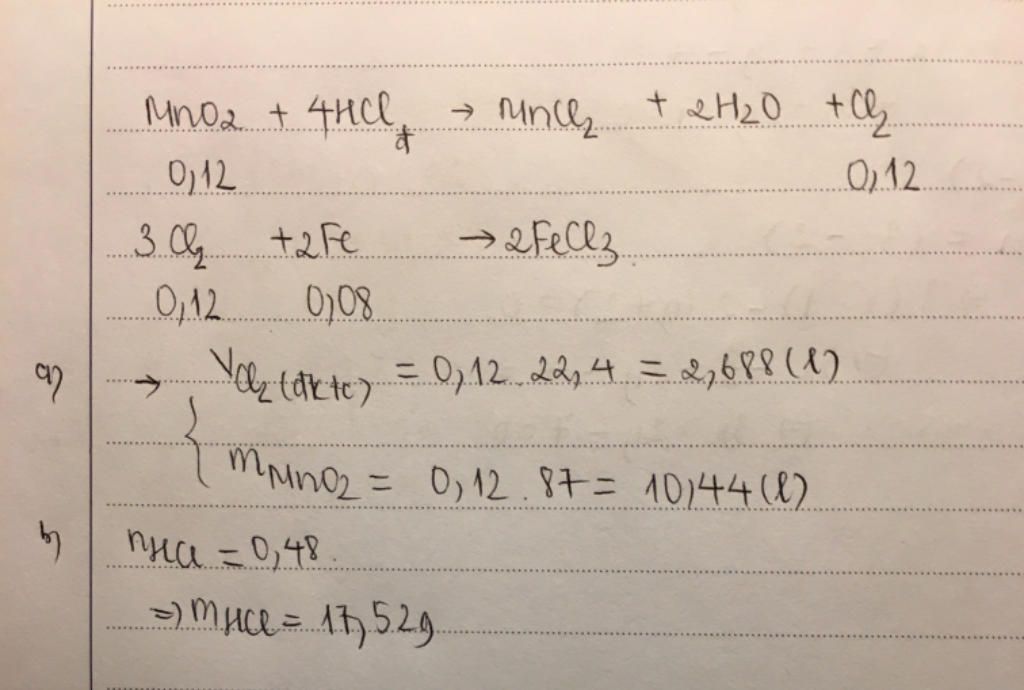 MnO2 + 4HClđ → MnCl2 + 2H2O + Cl2
0,12 0,12
3Cl2 + 2Fe → 2FeCl3
0,12 0,08
a) → { VCl2 (đktc) = 0,12 . 22,4 = 2,688 (l)
mMnO2 = 0,12 . 87 = 10,44 (l)
b) nHCl = 0,48
=> mHCl = 17,52g